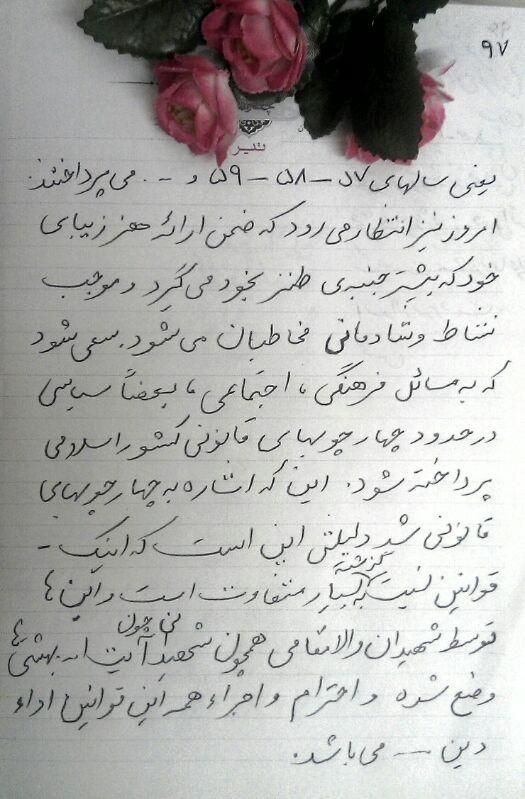 ۹۷
یعنی سالهای ۵۷ – ۵۸ – ۵۹ و -- . می پرداختند.
امروز نیز انتظار می رود که ضمن ارائه هنر زیبای
خود که بیشتر جنبه‌ی طنز بخود می گیرد و موجب
نشاط و شادمانی مخاطبان می شود. سعی شود
که به مسائل فرهنگی ، اجتماعی ، بعضاً سیاسی
در حدود چهارچوبهای قانونی کشور اسلامی
پرداخته شود. این که اشاره به چهارچوبهای
قانونی شد دلیلش این است که اینک -
قوانین نسبت به گذشته بسیار متفاوت است و این ها
توسط شهیدان والامقامی همچون شهید آیت اله بهشتی ها
وضع شده و احترام و اجراء همه این قوانین اداء
دین --- می باشد.